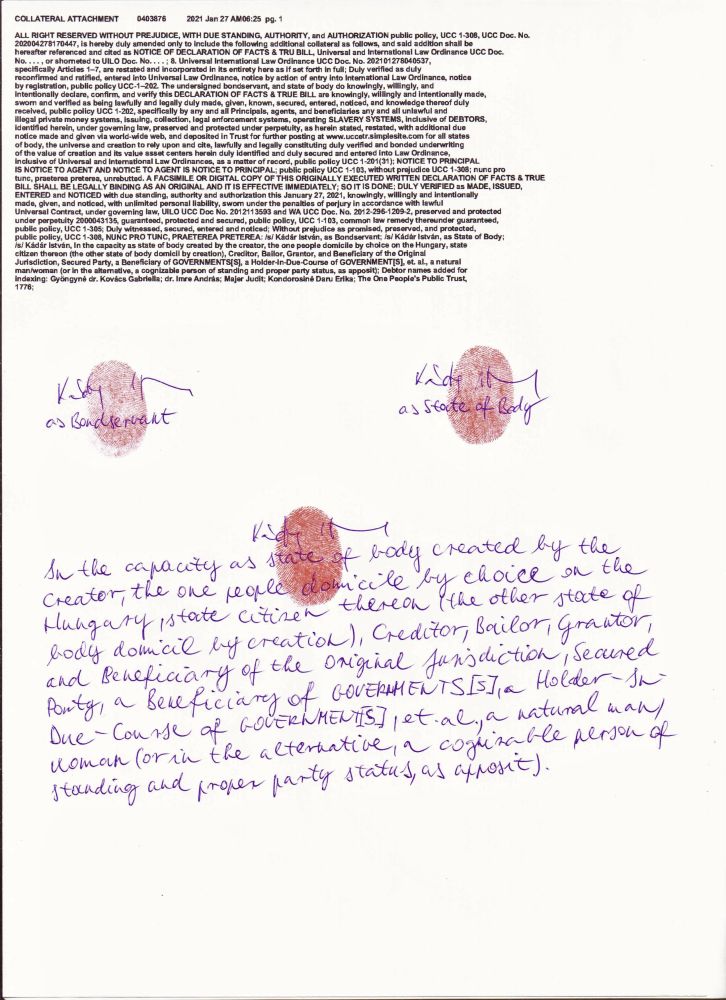 COLLATERAL ATTACHMENT 0403876 2021 Jan 27 AM06:25 pg. 1
ALL RIGHT RESERVED WITHOUT PREJUDICE, WITH DUE STANDING, AUTHORITY, and AUTHORIZATION public policy, UCC 1-308, UCC Doc. No.
2020042781​70447, is hereby duly amended only to include the following additional collateral as follows, and said addition shall be
hereafter referenced and cited as NOTICE OF DECLARATION OF FACTS & TRU BILL, Universal and International Law Ordinance UCC Doc.
No. . . . , or shorneted to UILO Doc. No. . . . ; 8. Universal International Law Ordinance UCC Doc. No. 202101278040537,
specifically Articles 1–7, are restated and incorporated in its entirety here as if set forth in full; Duly verified as duly
reonfirmed and ratified, entered into Universal Law Ordinance, notice by action of entry into International Law Ordinance, notice
by registration, public policy UCC-1–202. The undersigned bondservant, and state of body do knowingly, willingly, and
intentionally declare, confirm, and verify this DECLARATION OF FACTS & TRUE BILL are knowingly, willingly and intentionally made,
sworn and verified as being lawfully and legally duly made, given, known, secured, entered, noticed, and knowledge thereof duly
received, public policy UCC 1-202, specifically by any and all Principals, agents, and beneficiaries any and all unlawful and
illegal private money systems, issuing, collection, legal enforcement systems, operating SLAVERY SYSTEMS, inclusive of DEBTORS,
identified herein, under governing law, preserved and protected under perpetuity, as herein stated, restated, with additional due
notice made and given via world-wide web, and deposited in Trust for further posting at www.uccetr.simplesite.com for all states
of body, the universe and creation to rely upon and cite, lawfully and legally constituting duly verified and bonded underwriting
of the value of creation and its value asset centers herein duly identified and duly secured and entered into Law Ordinance,
inclusive of Universal and International Law Ordinances, as a matter of record, public policy UCC 1-201(31); NOTICE TO PRINCIPAL
IS NOTICE TO AGENT AND NOTICE TO AGENT IS NOTICE TO PRINCIPAL; public policy UCC 1-103, without prejudice UCC 1-308; nunc pro
tunc, praeterea preterea, unrebutted. A FACSIMILE OR DIGITAL COPY OF THIS ORIGINALLY EXECUTED WRITTEN DECLARATION OF FACTS & TRUE
BILL SHALL BE LEGALLY BINDING AS AN ORIGINAL AND IT IS EFFECTIVE IMMEDIATELY; SO IT IS DONE; DULY VERIFIED as MADE, ISSUED,
ENTERED and NOTICED with due standing, authority and authorization this January 27, 2021, knowingly, willingly and intentionally
made, given, and noticed, with unlimited personal liability, sworn under the penalties of perjury in accordance with lawful
Universal Contract, under governing law, UILO UCC Doc No. 2012113593 and WA UCC Doc. No. 2012-296-1209-2, preserved and protected
under perpetuity 2000043135, guaranteed, protected and secured, public policy, UCC 1-103, common law remedy thereunder guaranteed,
public policy, UCC 1-305; Duly witnessed, secured, entered and noticed; Without prejudice as promised, preserved, and protected,
public policy, UCC 1-308, NUNC PRO TUNC, PRAETEREA PRETEREA: /s/ Kádár István, as Bondservant; /s/ Kádár István, as State of Body;
/s/ Kádár István, In the capacity as state of body created by the creator, the one people domicile by choice on the Hungary, state
citizen thereon (the other state of body domicil by creation), Creditor, Bailor, Grantor, and Beneficiary of the Original
Jurisdiction, Secured Party, a Beneficiary of GOVERNMENTS[S], a Holder-In-Due-Course of GOVERNMENT[S], et. al., a natural
man/woman (or in the alternative, a cognizable person of standing and proper party status, as apposit); Debtor names added for
indexing: Gyöngyné dr. Kovács Gabriella; dr. Imre András; Majer Judit; Kondorosiné Daru Erika; The One People's Public Trust,
1776;
as Bondservant
as State of Body
In the capacity as state of body created by the
Creator, the one people domicile by choice on the
Hungary, state citizen thereon (the other state of
body domicil by creation), Creditor, Bailor, Grantor,
and Beneficiary of the Original Jurisdiction, Secured
Party, a Beneficiary of GOVERNMENTS[S], a Holder-In-
Due-Course of GOVERNMENT[S], et. al., a natural man/
woman (or in the alternative, a cognizable person of
standing and proper party status, as apposit).